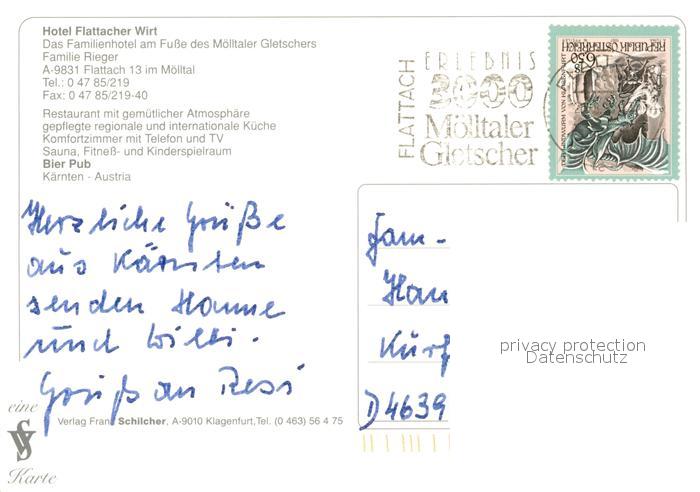 Hotel Flattacher Wirt
Das Familienhotel am Fuße des Mölltaler Gletschers
Familie Rieger
A-9831 Flattach 13 im Mölltal
Tel.: 0 47 85/219
Fax: 0 47 85/219-40
Restaurant mit gemütlicher Atmosphäre
gepflegte regionale und internationale Küche
Komfortzimmer mit Telefon und TV
Sauna, Fitneß- und Kinderspielraum
Bier Pub
Kärnten - Austria
FLATTACH
ERLEBNIS
3000
Mölltaler
Gletscher
REPUBLIK ÖSTERREICH
S 6.50
Herzliche Grüße
aus Kärnten
senden Hanne
und Willi.
Gruß an Resi
Fam.
Han
Kurf
D4639
privacy protection
Datenschutz
eine
Karte
Verlag Franz Schilcher, A-9010 Klagenfurt, Tel. (0 463) 56 4 75